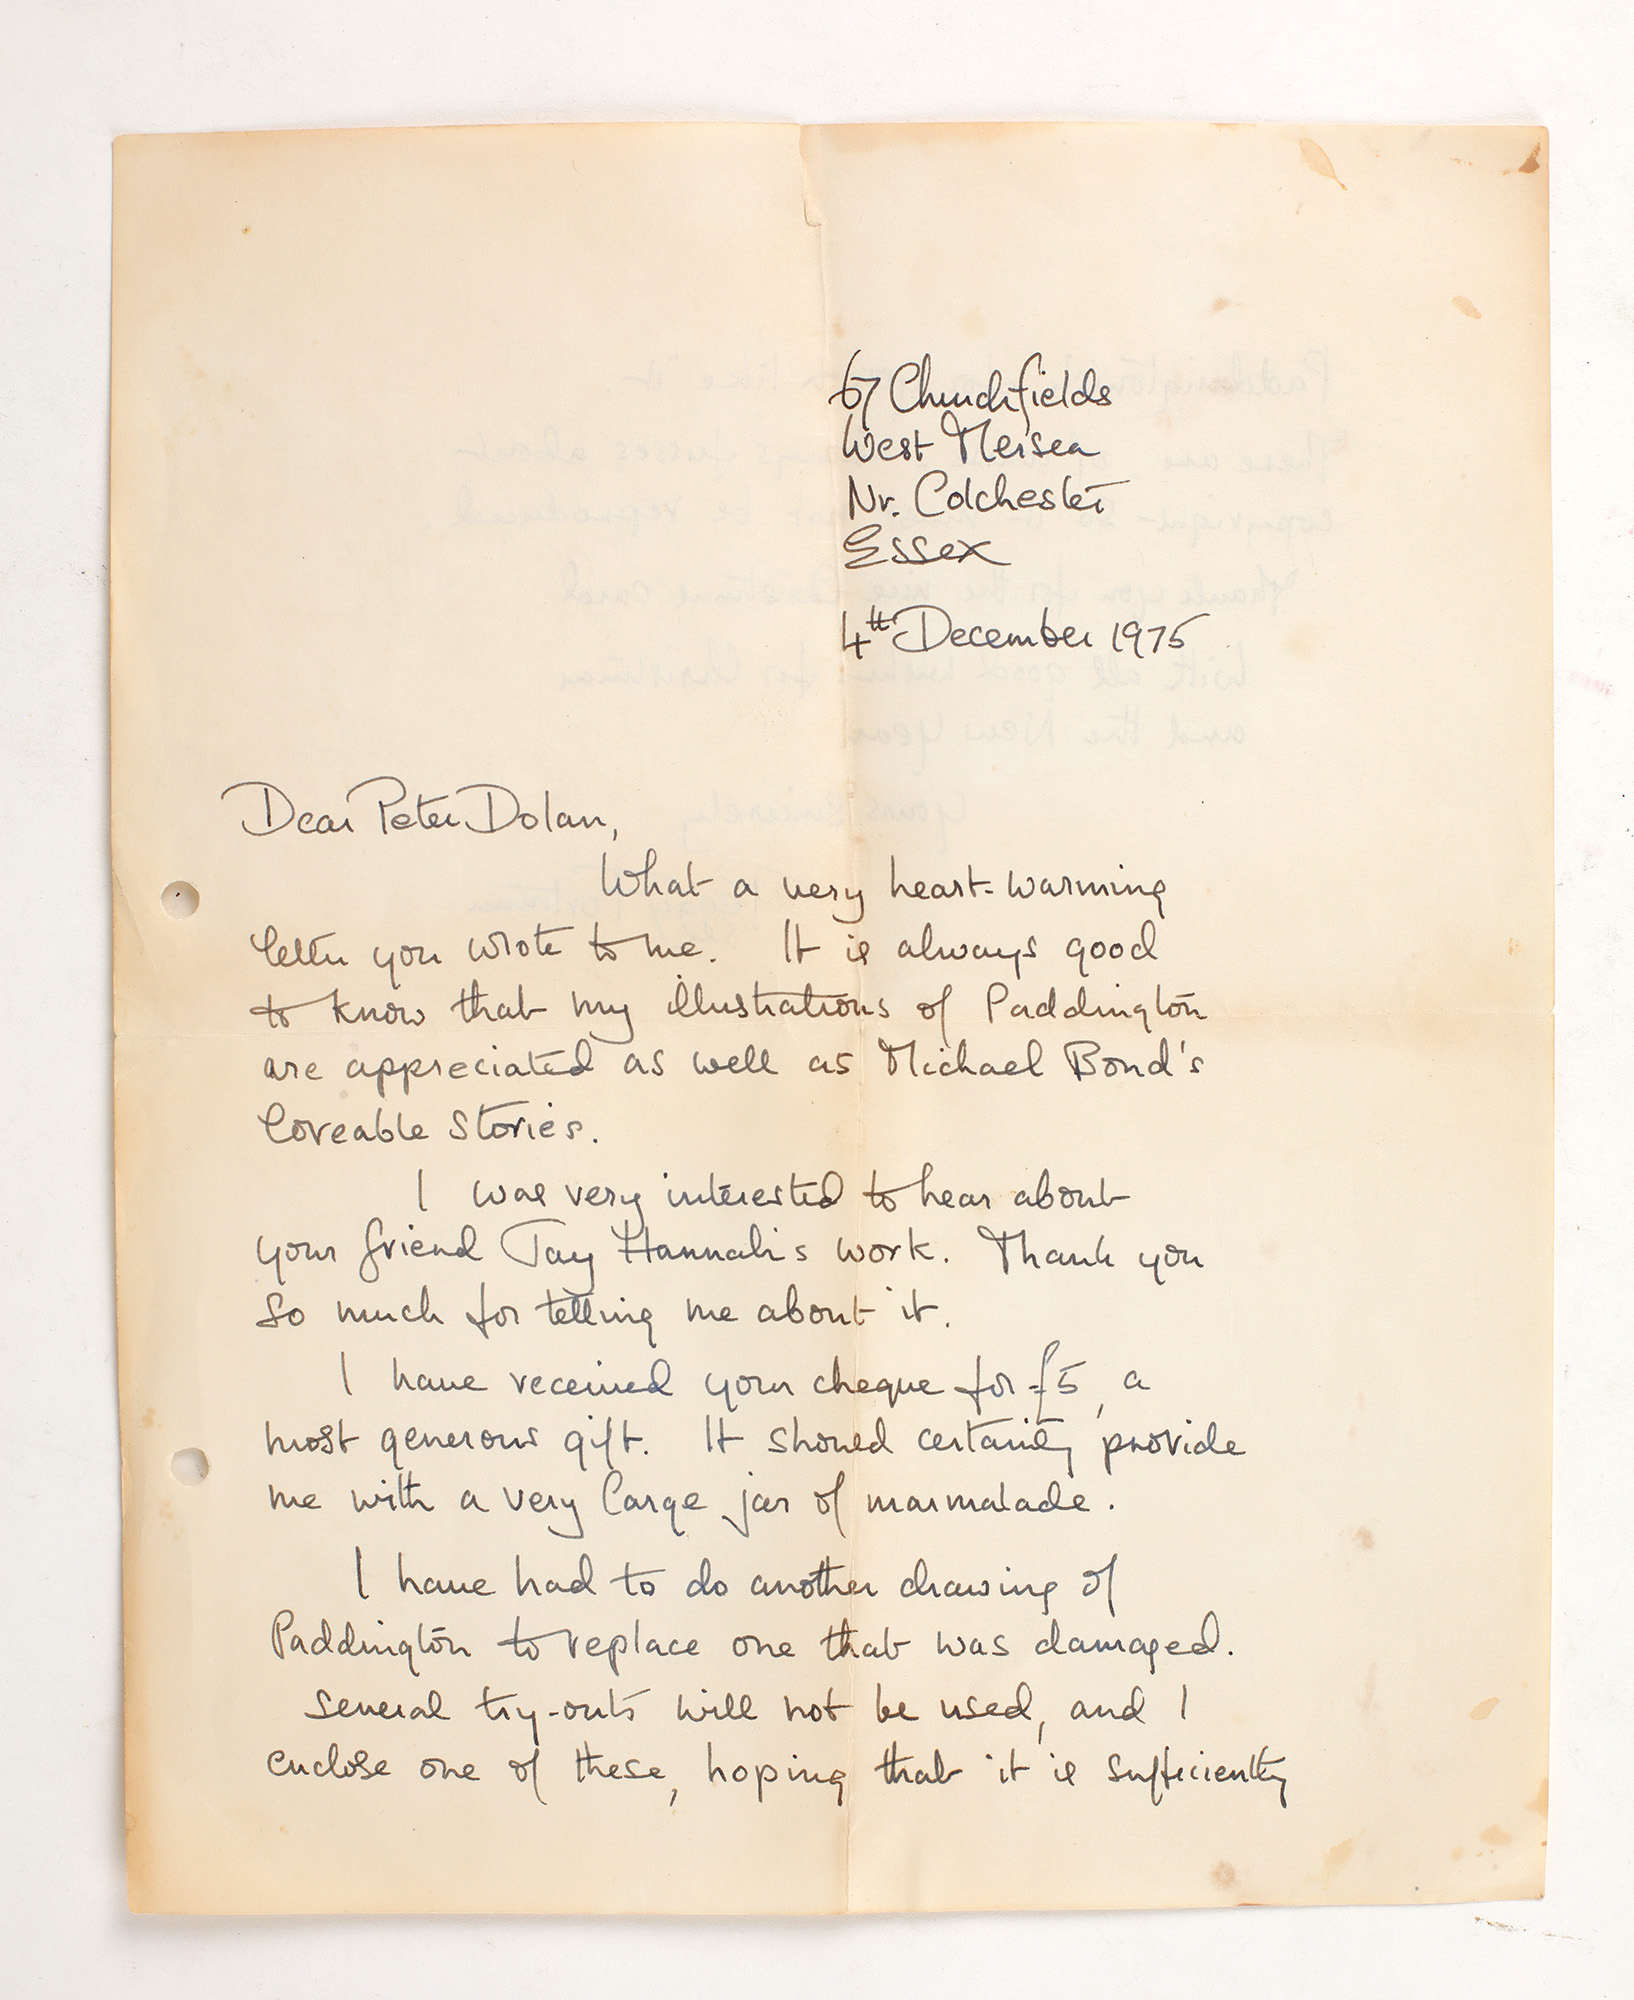 67 Churchfields
West Mersea
Nr. Colchester
Essex
4th December 1975
Dear Peter Dolan,
What a very heart-warming
letter you wrote to me. It is always good
to know that my illustrations of Paddington
are appreciated as well as Michael Bond's
loveable stories.
I was very interested to hear about
your friend Jay Hannah's work. Thank you
so much for telling me about it.
I have received your cheque for £5, a
most generous gift. It should certainly provide
me with a very large jar of marmalade.
I have had to do another drawing of
Paddington to replace one that was damaged.
Several try-outs will not be used, and I
enclose one of these, hoping that it is sufficiently